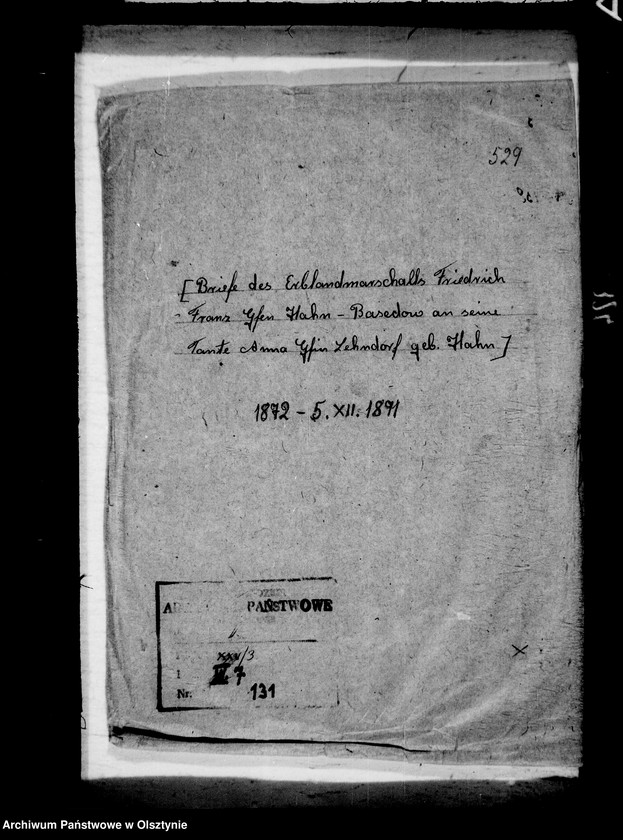 529
[Briefe des Erblandmarschalls Friedrich
Franz Gfen Hahn - Basedow an seine
Tante Anna Gfin Lehndorf geb. Hahn]
1872 - 5. XII. 1891
PAŃSTWOWE
XXV/3
7
Nr. 131
Archiwum Państwowe w Olsztynie